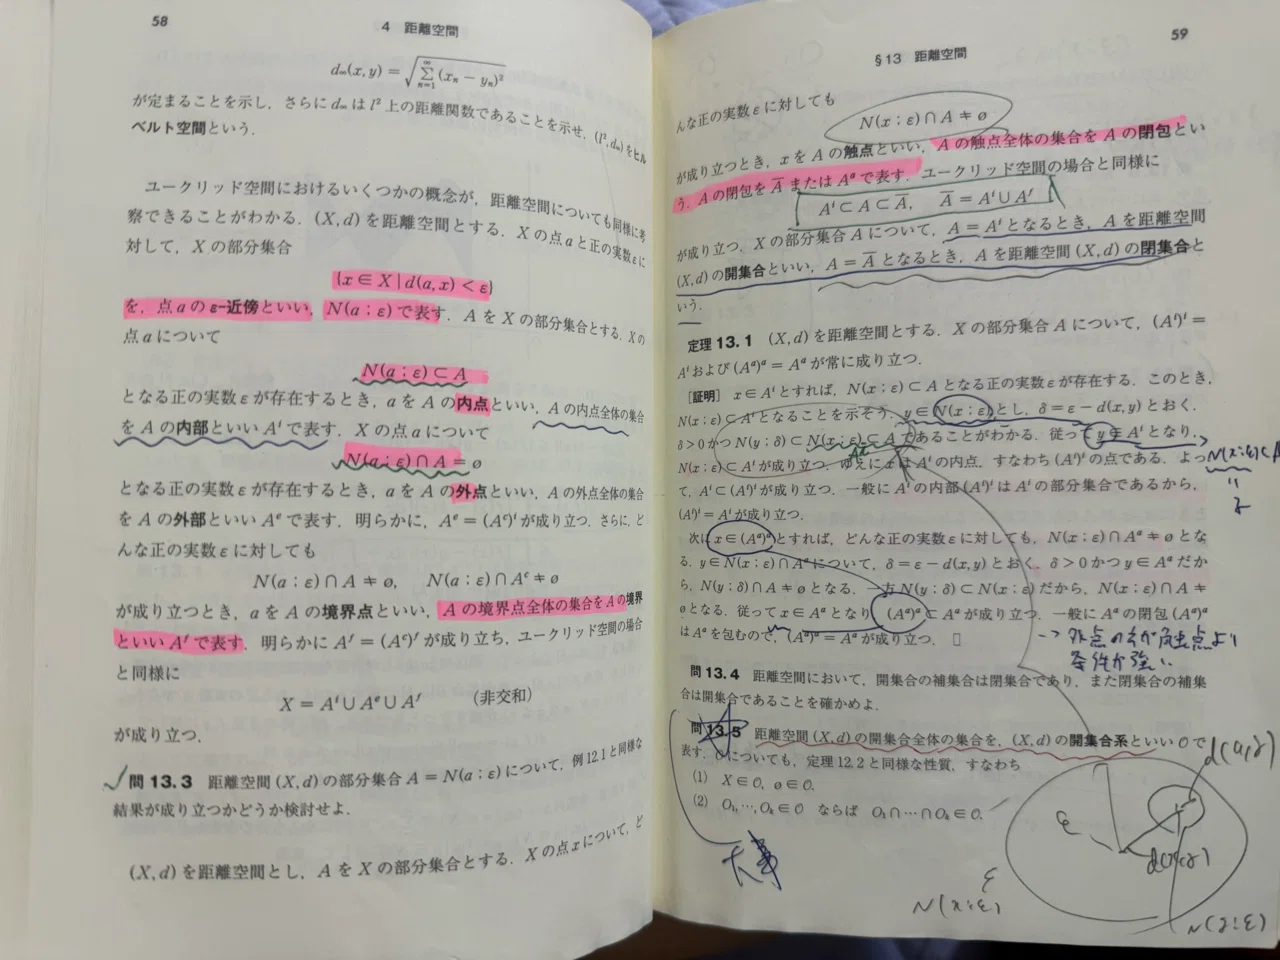 58
4 距離空間
d∞(x, y) = √(Σ_{n=1}^{∞} (xₙ − yₙ)²)
が定まることを示し，さらに d∞ は l² 上の距離関数であることを示せ．(l², d∞) をヒル
ベルト空間という．
ユークリッド空間におけるいくつかの概念が，距離空間についても同様に考
察できることがわかる．(X, d) を距離空間とする．X の点 a と正の実数 ε に
対して，X の部分集合
{x ∈ X | d(a, x) < ε}
を，点 a の ε-近傍といい，N(a ; ε) で表す．A を X の部分集合とする．X の
点 a について
N(a ; ε) ⊂ A
となる正の実数 ε が存在するとき，a を A の内点といい，A の内点全体の集合
を A の内部といい Aⁱ で表す．X の点 a について
N(a ; ε) ∩ A = ø
となる正の実数 ε が存在するとき，a を A の外点といい，A の外点全体の集合
を A の外部といい Aᵉ で表す．明らかに，Aᵉ = (Aᶜ)ⁱ が成り立つ．さらに，ど
んな正の実数 ε に対しても
N(a ; ε) ∩ A ≠ ø, N(a ; ε) ∩ Aᶜ ≠ ø
が成り立つとき，a を A の境界点といい，A の境界点全体の集合を A の境界
といい Aᶠ で表す．明らかに Aᶠ = (Aᶜ)ᶠ が成り立ち，ユークリッド空間の場合
と同様に
X = Aⁱ ∪ Aᵉ ∪ Aᶠ (非交和)
が成り立つ．
問 13.3 距離空間 (X, d) の部分集合 A = N(a ; ε) について，例 12.1 と同様な
結果が成り立つかどうか検討せよ．
(X, d) を距離空間とし，A を X の部分集合とする．X の点 x について，ど
§13 距離空間
59
んな正の実数 ε に対しても
N(x ; ε) ∩ A ≠ ø
が成り立つとき，x を A の触点といい，A の触点全体の集合を A の閉包とい
う．A の閉包を A̅ または Aᵃ で表す．ユークリッド空間の場合と同様に
Aⁱ ⊂ A ⊂ A̅, A̅ = Aⁱ ∪ Aᶠ
が成り立つ．X の部分集合 A について，A = Aⁱ となるとき，A を距離空間
(X, d) の開集合といい，A = A̅ となるとき，A を距離空間 (X, d) の閉集合と
いう．
定理 13.1 (X, d) を距離空間とする．X の部分集合 A について，(Aⁱ)ⁱ =
Aⁱ および (Aᵃ)ᵃ = Aᵃ が常に成り立つ．
［証明］ x ∈ Aⁱ とすれば，N(x ; ε) ⊂ A となる正の実数 ε が存在する．このとき，
N(x ; ε) ⊂ Aⁱ となることを示そう．y ∈ N(x ; ε) とし，δ = ε − d(x, y) とおく．
δ > 0 かつ N(y ; δ) ⊂ N(x ; ε) ⊂ A であることがわかる．従って y ∈ Aⁱ となり，
N(x ; ε) ⊂ Aⁱ が成り立つ．ゆえに x は Aⁱ の内点，すなわち (Aⁱ)ⁱ の点である．よっ
て，Aⁱ ⊂ (Aⁱ)ⁱ が成り立つ．一般に Aⁱ の内部 (Aⁱ)ⁱ は Aⁱ の部分集合であるから，
(Aⁱ)ⁱ = Aⁱ が成り立つ．
次に x ∈ (Aᵃ)ᵃ とすれば，どんな正の実数 ε に対しても，N(x ; ε) ∩ Aᵃ ≠ ø とな
る．y ∈ N(x ; ε) ∩ Aᵃ について，δ = ε − d(x, y) とおく．δ > 0 かつ y ∈ Aᵃ だか
ら，N(y ; δ) ∩ A ≠ ø となる．一方 N(y ; δ) ⊂ N(x ; ε) だから，N(x ; ε) ∩ A ≠
ø となる．従って x ∈ Aᵃ となり (Aᵃ)ᵃ ⊂ Aᵃ が成り立つ．一般に Aᵃ の閉包 (Aᵃ)ᵃ
は Aᵃ を包むので，(Aᵃ)ᵃ = Aᵃ が成り立つ． □
条件が強い
問 13.4 距離空間において，開集合の補集合は閉集合であり，また閉集合の補集
合は開集合であることを確かめよ．
問 13.5 距離空間 (X, d) の開集合全体の集合を，(X, d) の開集合系といい O で
表す．O についても，定理 12.2 と同様な性質，すなわち
(1) X ∈ O, ø ∈ O.
(2) O₁, ⋯, Oₖ ∈ O ならば O₁ ∩ ⋯ ∩ Oₖ ∈ O.
大事
ε
N(x ; ε)